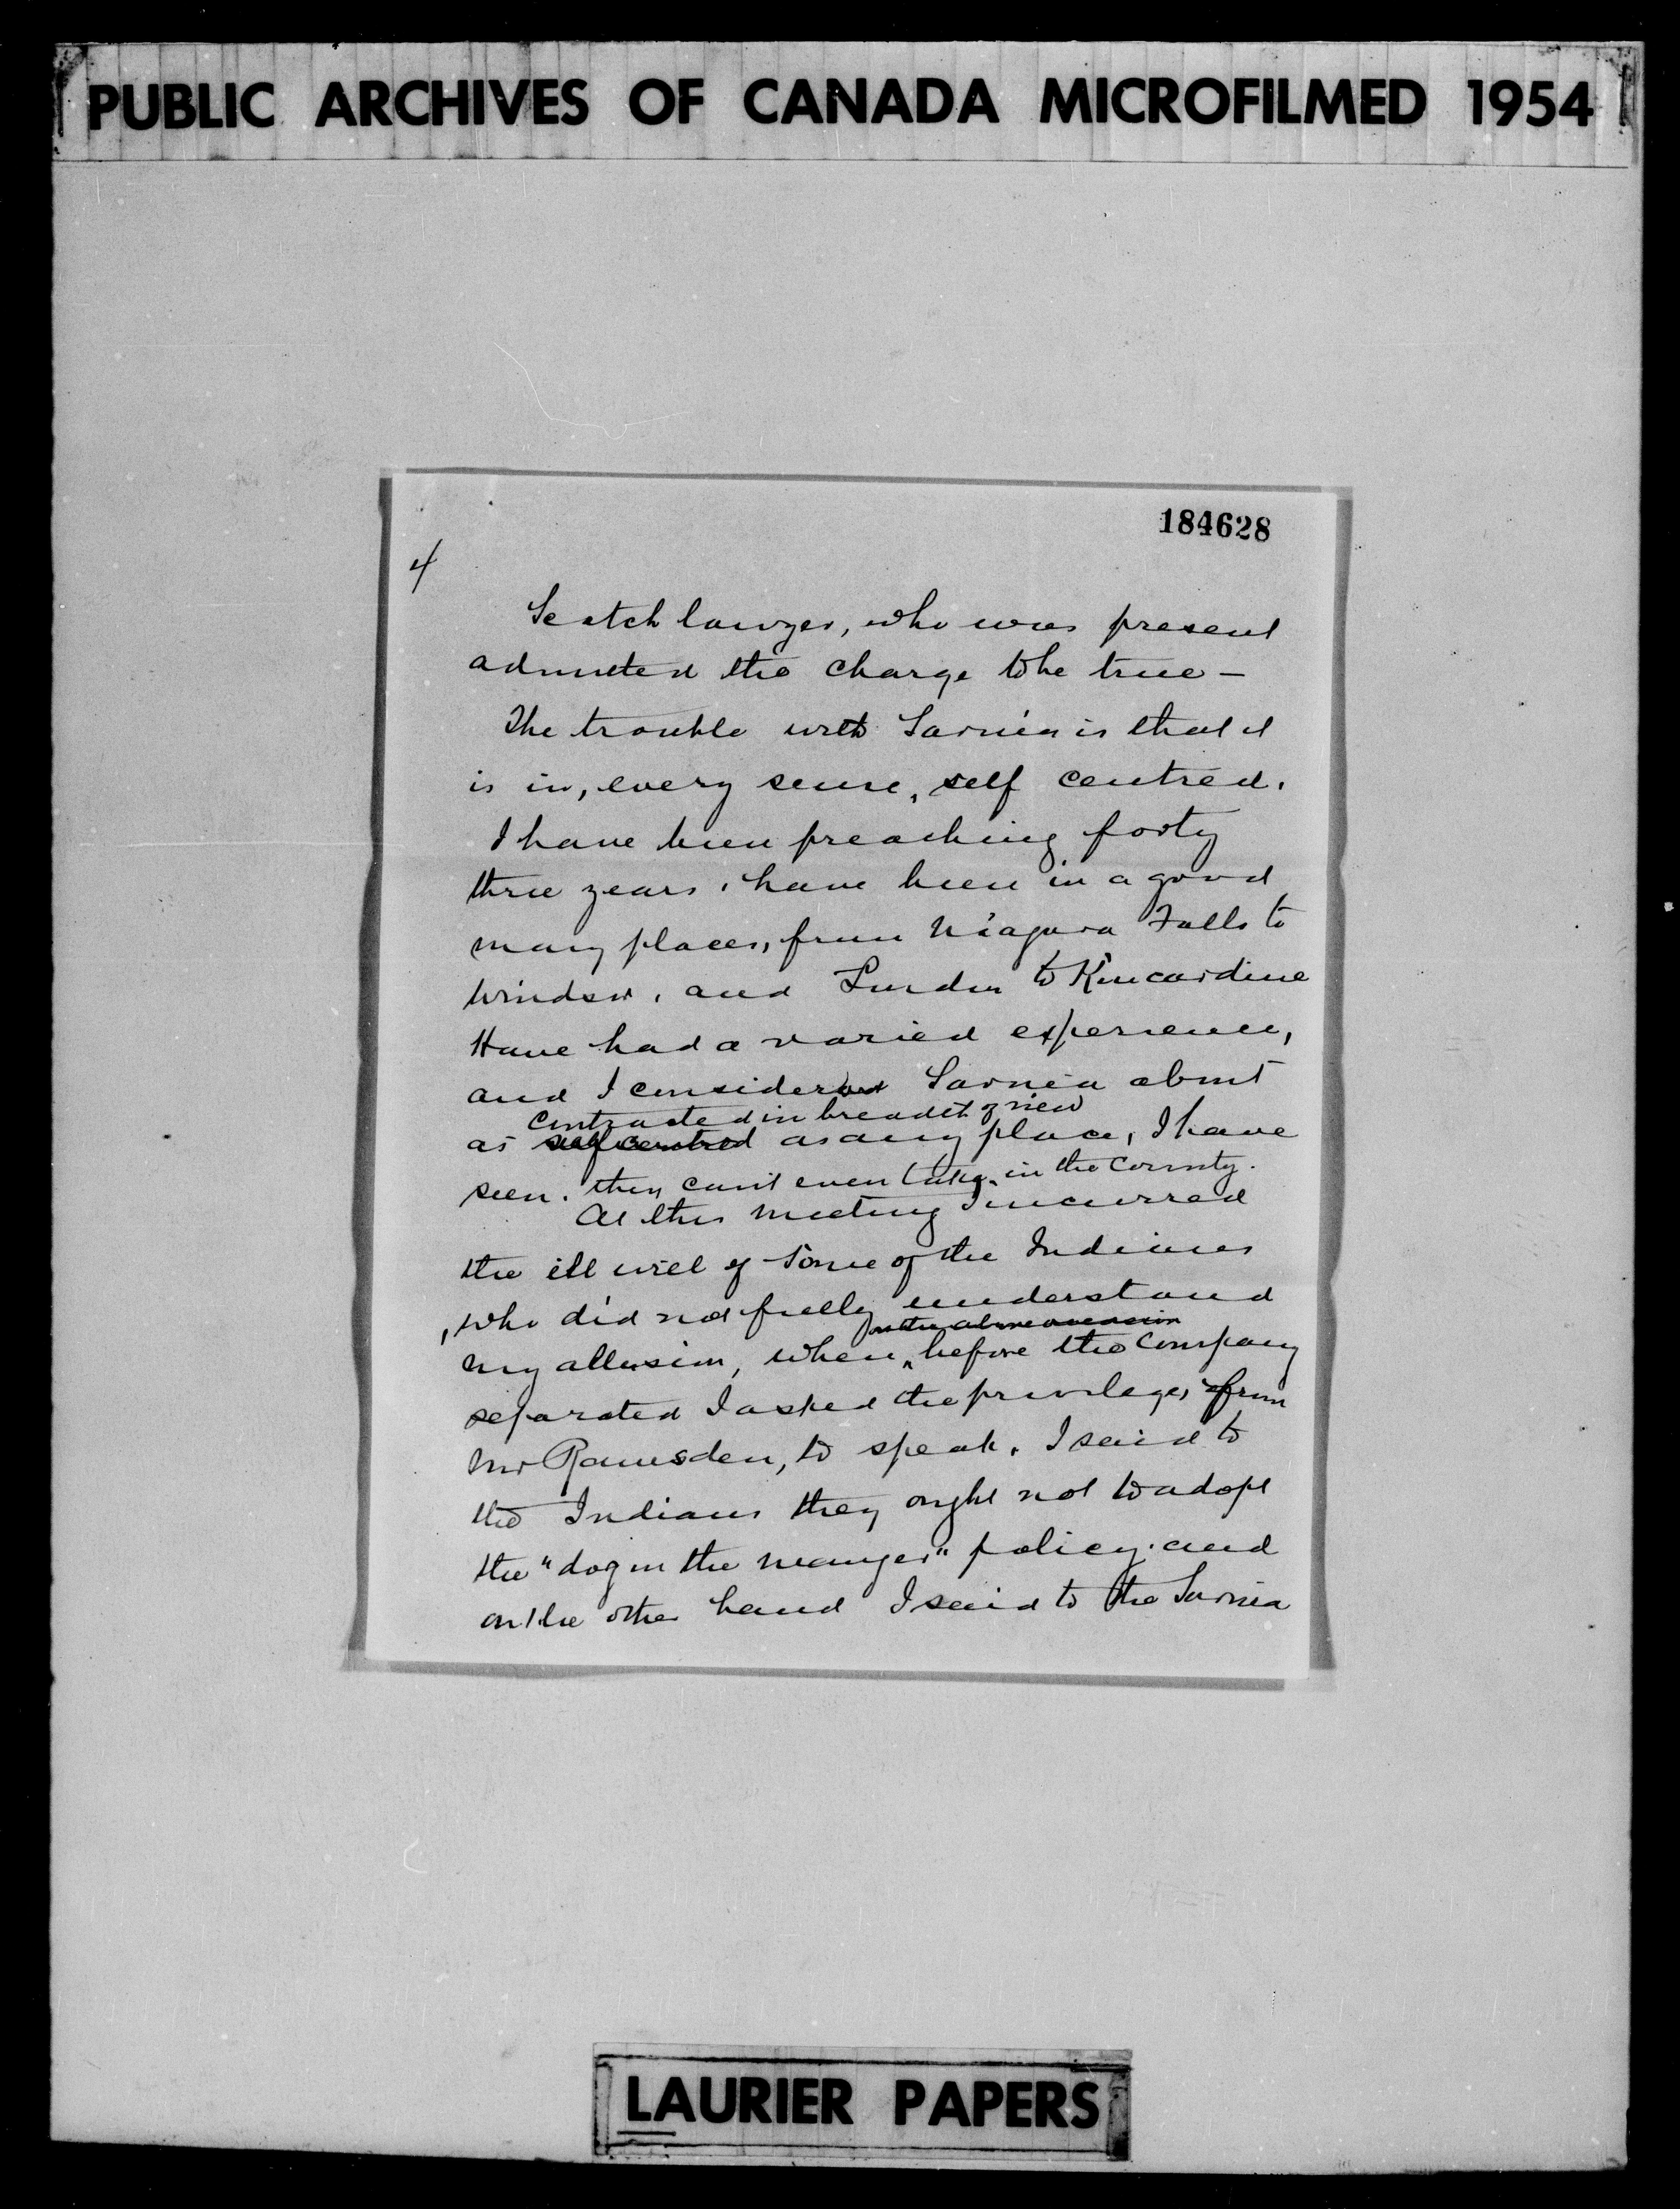 PUBLIC ARCHIVES OF CANADA MICROFILMED 1954
184628
4
Scotch lawyer, who was present
admitted the charge to be true —
The trouble with Sarnia is that it
is in, every sense, self centred.
I have been preaching forty
three years, have been in a good
many places, from Niagara Falls to
Windsor, and London to Kincardine
Have had a varied experience,
and I consider Sarnia about
contracted in breadth of view
as self centred as any place, I have
seen. they can't even take in the County.
At this meeting I incurred
the ill will of some of the Indians
, who did not fully understand
on the above occasion
my allusion, when, before the Company
separated I asked the privilege, from
Mr Ramsden, to speak. I said to
the Indians they ought not to adopt
the "dog in the manger" policy. and
on the other hand I said to the Sarnia
LAURIER PAPERS